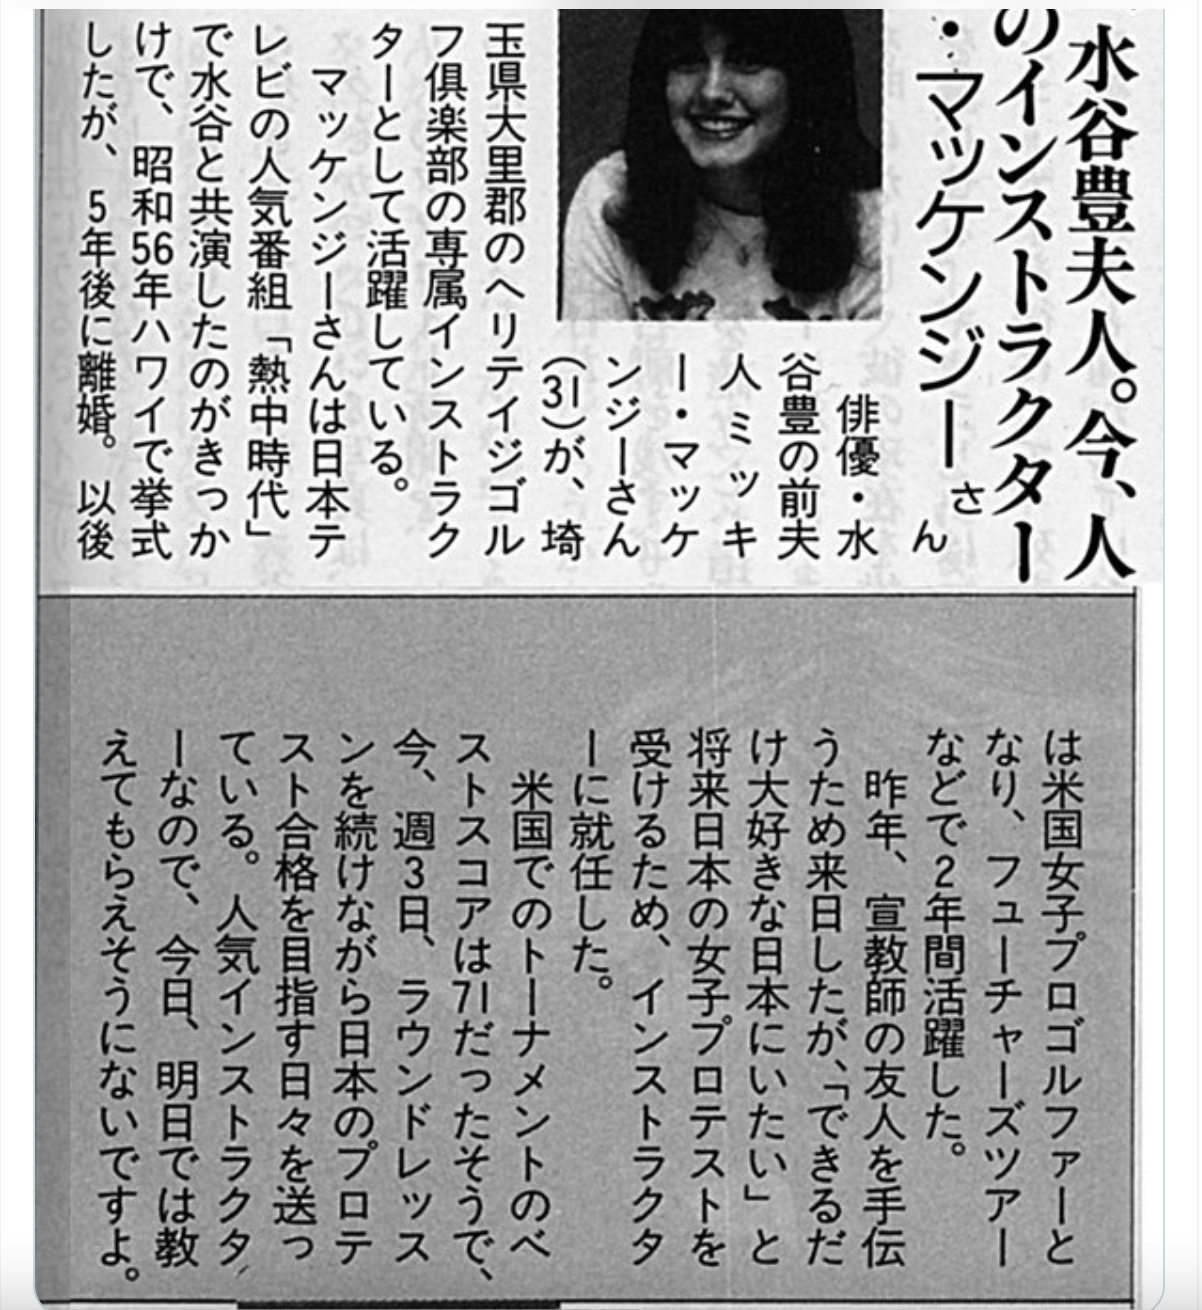 水谷豊夫人。今、人
のインストラクター
・マッケンジーさん
俳優・水
谷豊の前夫
人ミッキ
ー・マッケ
ンジーさん
（31）が、埼
玉県大里郡のヘリテイジゴル
フ倶楽部の専属インストラク
ターとして活躍している。
マッケンジーさんは日本テ
レビの人気番組「熱中時代」
で水谷と共演したのがきっか
けで、昭和56年ハワイで挙式
したが、5年後に離婚。以後
は米国女子プロゴルファーと
なり、フューチャーズツアー
などで2年間活躍した。
昨年、宣教師の友人を手伝
うため来日したが、「できるだ
け大好きな日本にいたい」と
将来日本の女子プロテストを
受けるため、インストラクタ
ーに就任した。
米国でのトーナメントのベ
ストスコアは71だったそうで、
今、週3日、ラウンドレッス
ンを続けながら日本のプロテ
スト合格を目指す日々を送っ
ている。人気インストラクタ
ーなので、今日、明日では教
えてもらえそうにないですよ。